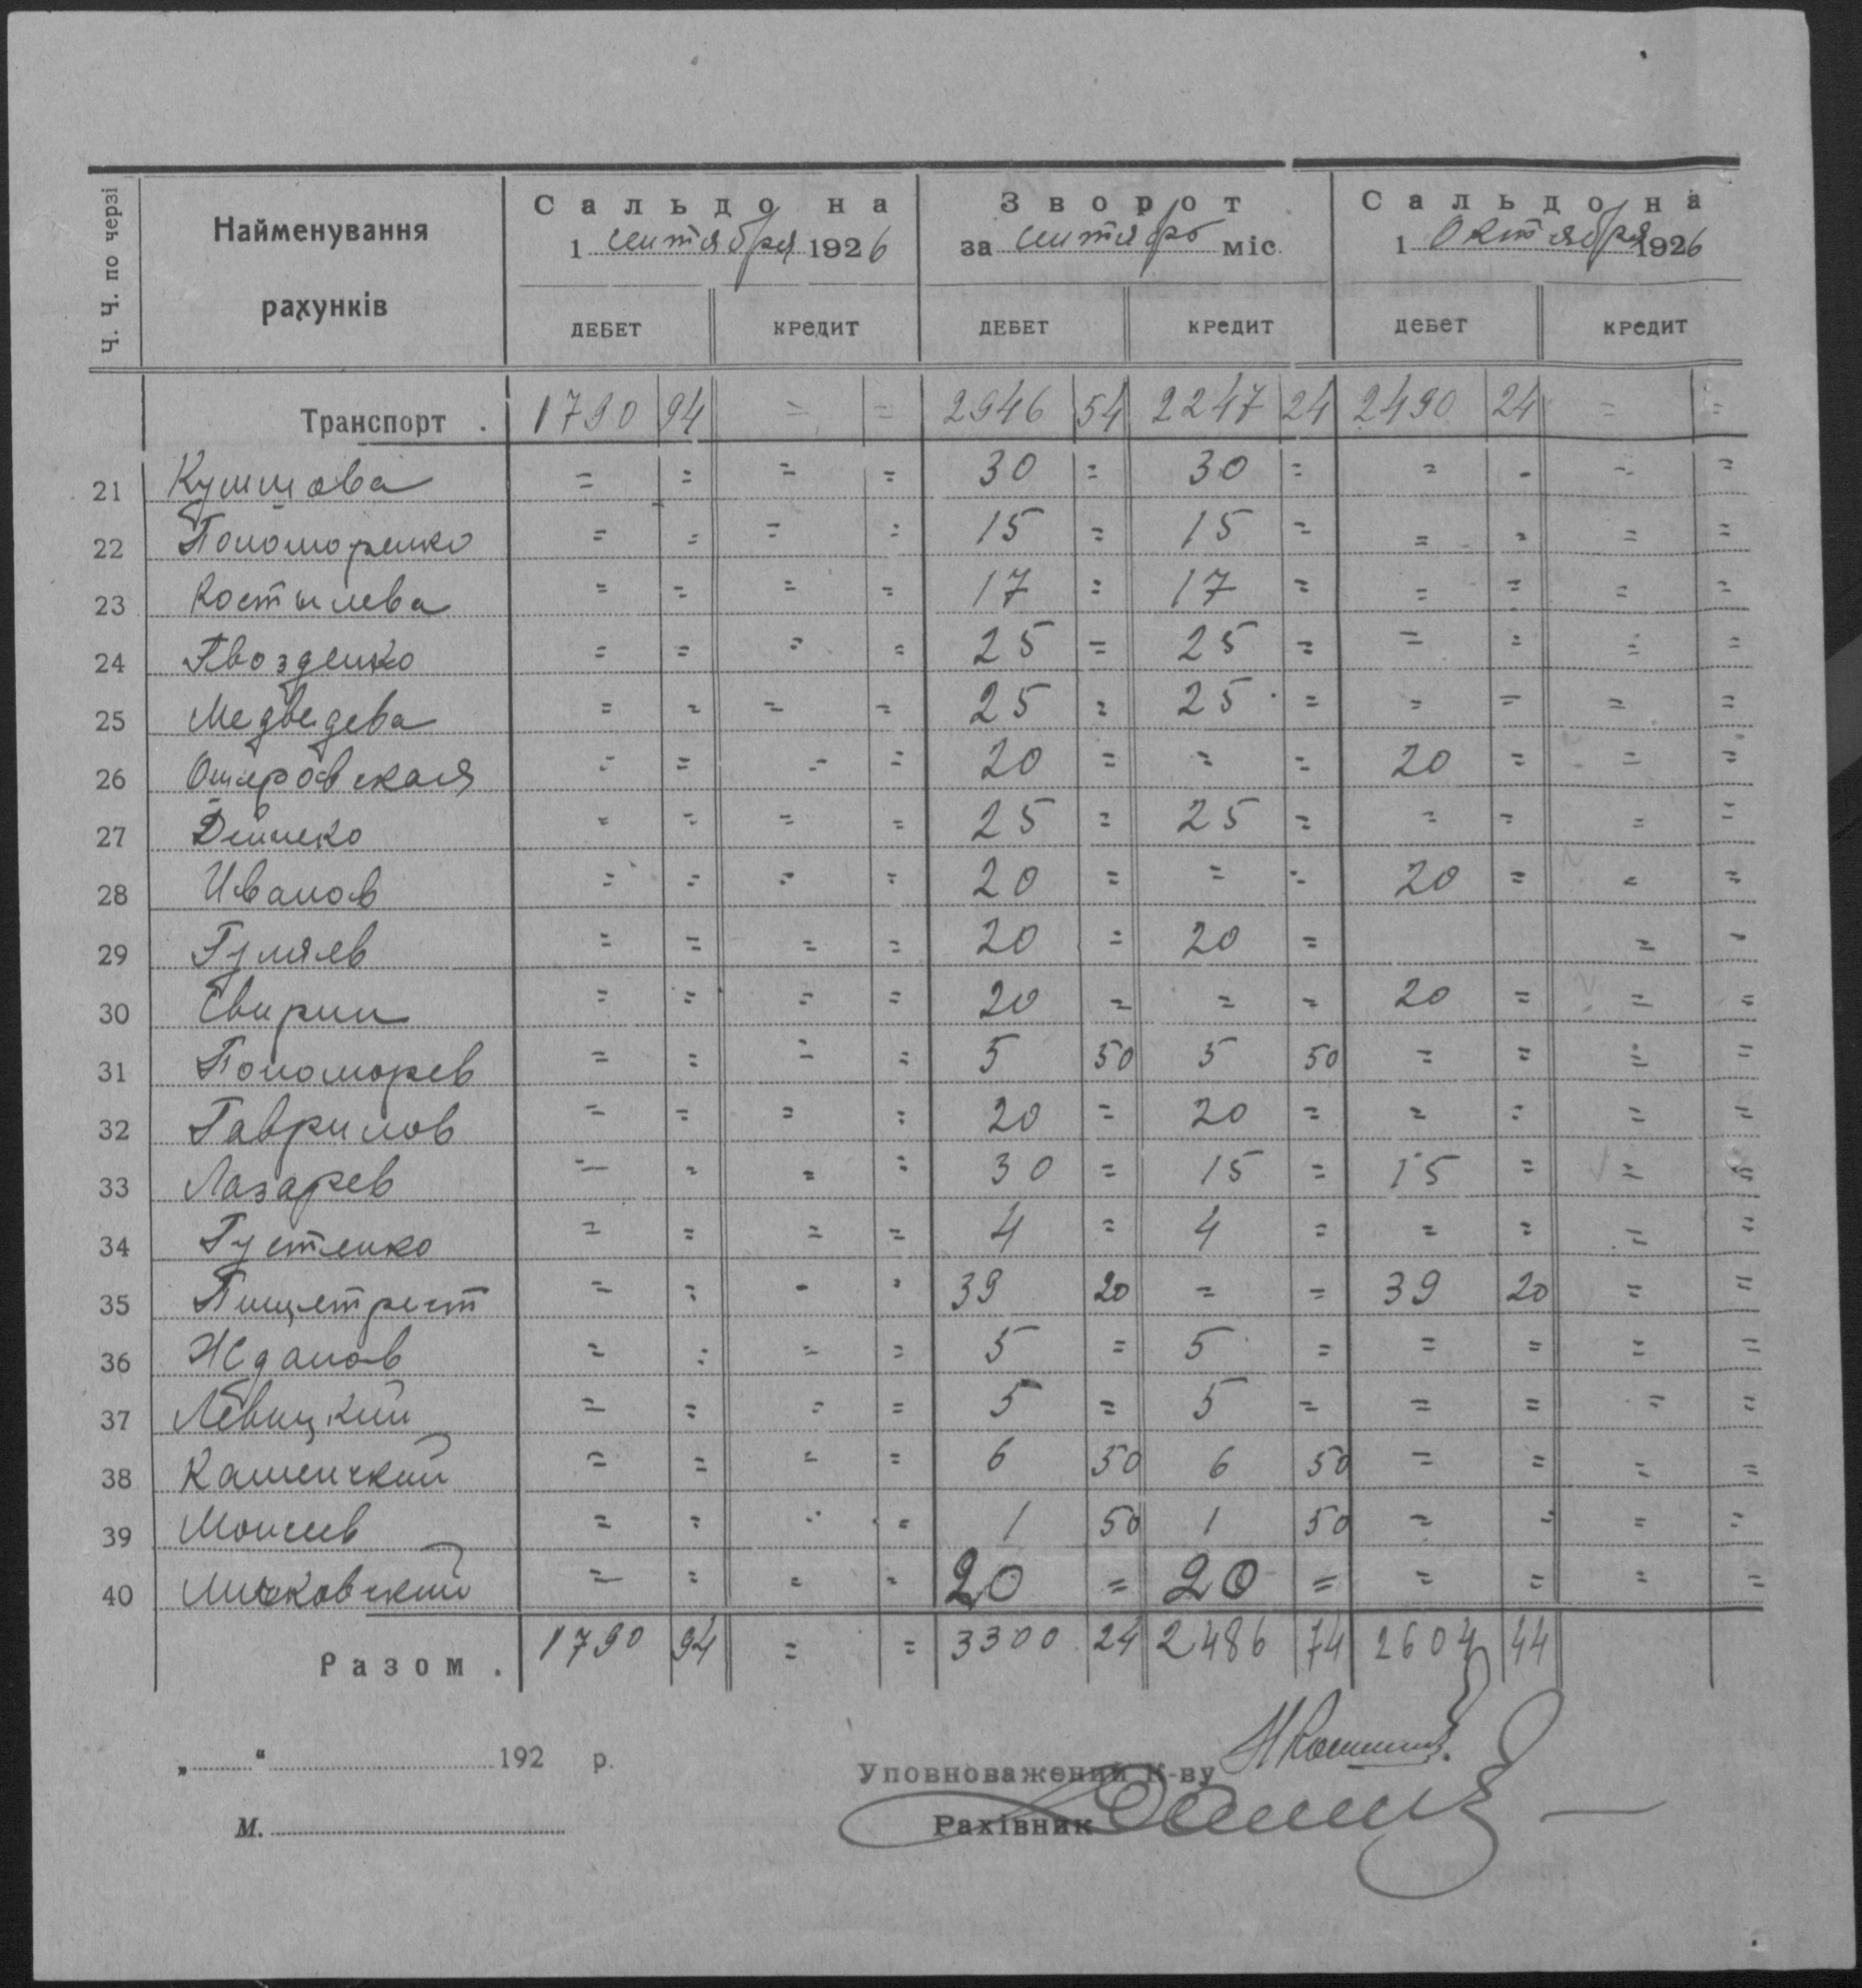 Ч. Ч. по черзі
Найменування рахунків
Сальдо на 1 сентября 1926
Зворот за сентябрь міс.
Сальдо на 1 Октября 1926
ДЕБЕТ КРЕДИТ ДЕБЕТ КРЕДИТ ДЕБЕТ КРЕДИТ
Транспорт . 1790 94 = = 2946 54 2247 24 2490 24 = =
21 = = = = 30 = 30 = = = = =
22 Пономоренко = = = = 15 = 15 = = = = =
23 Костылева = = = = 17 = 17 = = = = =
24 Гвозденко = = = = 25 = 25 = = = = =
25 Медведева = = = = 25 = 25 = = = = =
26 = = = = 20 = = = 20 = = =
27 = = = = 25 = 25 = = = = =
28 Иванов = = = = 20 = = = 20 = = =
29 Гуляев = = = = 20 = 20 = = =
30 Свирин = = = = 20 = = = 20 = = =
31 Пономорев = = = = 5 50 5 50 = = = =
32 Гаврилов = = = = 20 = 20 = = = = =
33 Лазарев = = = = 30 = 15 = 15 = = =
34 Густенко = = = = 4 = 4 = = = = =
35 Пищетрест = = = = 39 20 = = 39 20 = =
36 Жданов = = = = 5 = 5 = = = = =
37 Левицкий = = = = 5 = 5 = = = = =
38 = = = = 6 50 6 50 = = = =
39 Моисеев = = = = 1 50 1 50 = = = =
40 = = = = 20 = 20 = = = = =
Разом . 1790 94 = = 3300 24 2486 74 2604 44
„ “ 192 р.
Уповноважений К-ву
М.
Рахівник